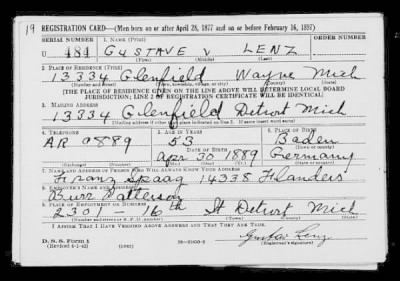 19 REGISTRATION CARD—(Men born on or after April 28, 1877 and on or before February 16, 1897)
SERIAL NUMBER 1. NAME (Print) ORDER NUMBER
U 484 GUSTAVE V LENZ
(First) (Middle) (Last)
2. PLACE OF RESIDENCE (Print)
13334 Glenfield Wayne Mich
(Number and street) (Town, township, village, or city) (County) (State)
[THE PLACE OF RESIDENCE GIVEN ON THE LINE ABOVE WILL DETERMINE LOCAL BOARD
JURISDICTION; LINE 2 OF REGISTRATION CERTIFICATE WILL BE IDENTICAL]
3. MAILING ADDRESS
13334 Glenfield Detroit Mich
[Mailing address if other than place indicated on line 2. If same insert word same]
4. TELEPHONE 5. AGE IN YEARS 6. PLACE OF BIRTH
AR 0889 53 Baden
DATE OF BIRTH (Town or county)
Apr 30 1889 Germany
(Exchange) (Number) (Mo.) (Day) (Yr.) (State or country)
7. NAME AND ADDRESS OF PERSON WHO WILL ALWAYS KNOW YOUR ADDRESS
Franz Spaag 14338 Flanders
8. EMPLOYER'S NAME AND ADDRESS
Burr Patterson
9. PLACE OF EMPLOYMENT OR BUSINESS
2301 - 16th St Detroit Mich
(Number and street or R. F. D. number) (Town) (County) (State)
I AFFIRM THAT I HAVE VERIFIED ABOVE ANSWERS AND THAT THEY ARE TRUE.
D. S. S. Form 1
(Revised 4-1-42) (over) Gustav Lenz
(Registrant's signature)